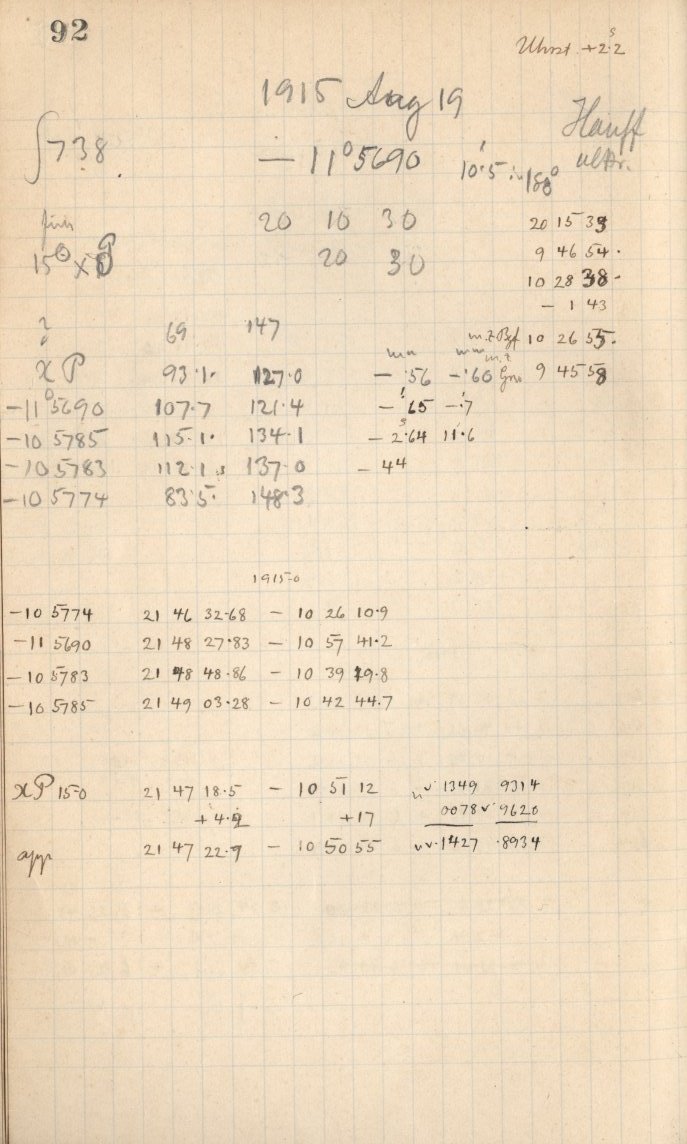 92
Uhrst. +2ˢ.2
1915 Aug 19
Hauff
ultr.
∫738. — 11°5690 10'.5 in 180°
20 10 30 20 15 33
15 x 20 30 9 46 54.
10 28 38-
— 1 43
z 69 147 m.Z Bgf 10 26 55.
xP 93.1. 127.0 — .56 —.60 m.z Grw 9 45 58
—11°5690 107.7 121.4 — '.65 —'.7
—10 5785 115.1. 134.1 — 2ˢ.64 11.6
—10 5783 112.1 137.0 — 44
—10 5774 83.5. 148.3
1915.0
—10 5774 21 46 32.68 — 10 26 10.9
—11 5690 21 48 27.83 — 10 57 41.2
—10 5783 21 48 48.86 — 10 39 29.8
—10 5785 21 49 03.28 — 10 42 44.7
xP 15.0 21 47 18.5 — 10 51 12 1349 9314
+4.4 +17 0078 9620
app 21 47 22.9 — 10 50 55 .1427 .8934